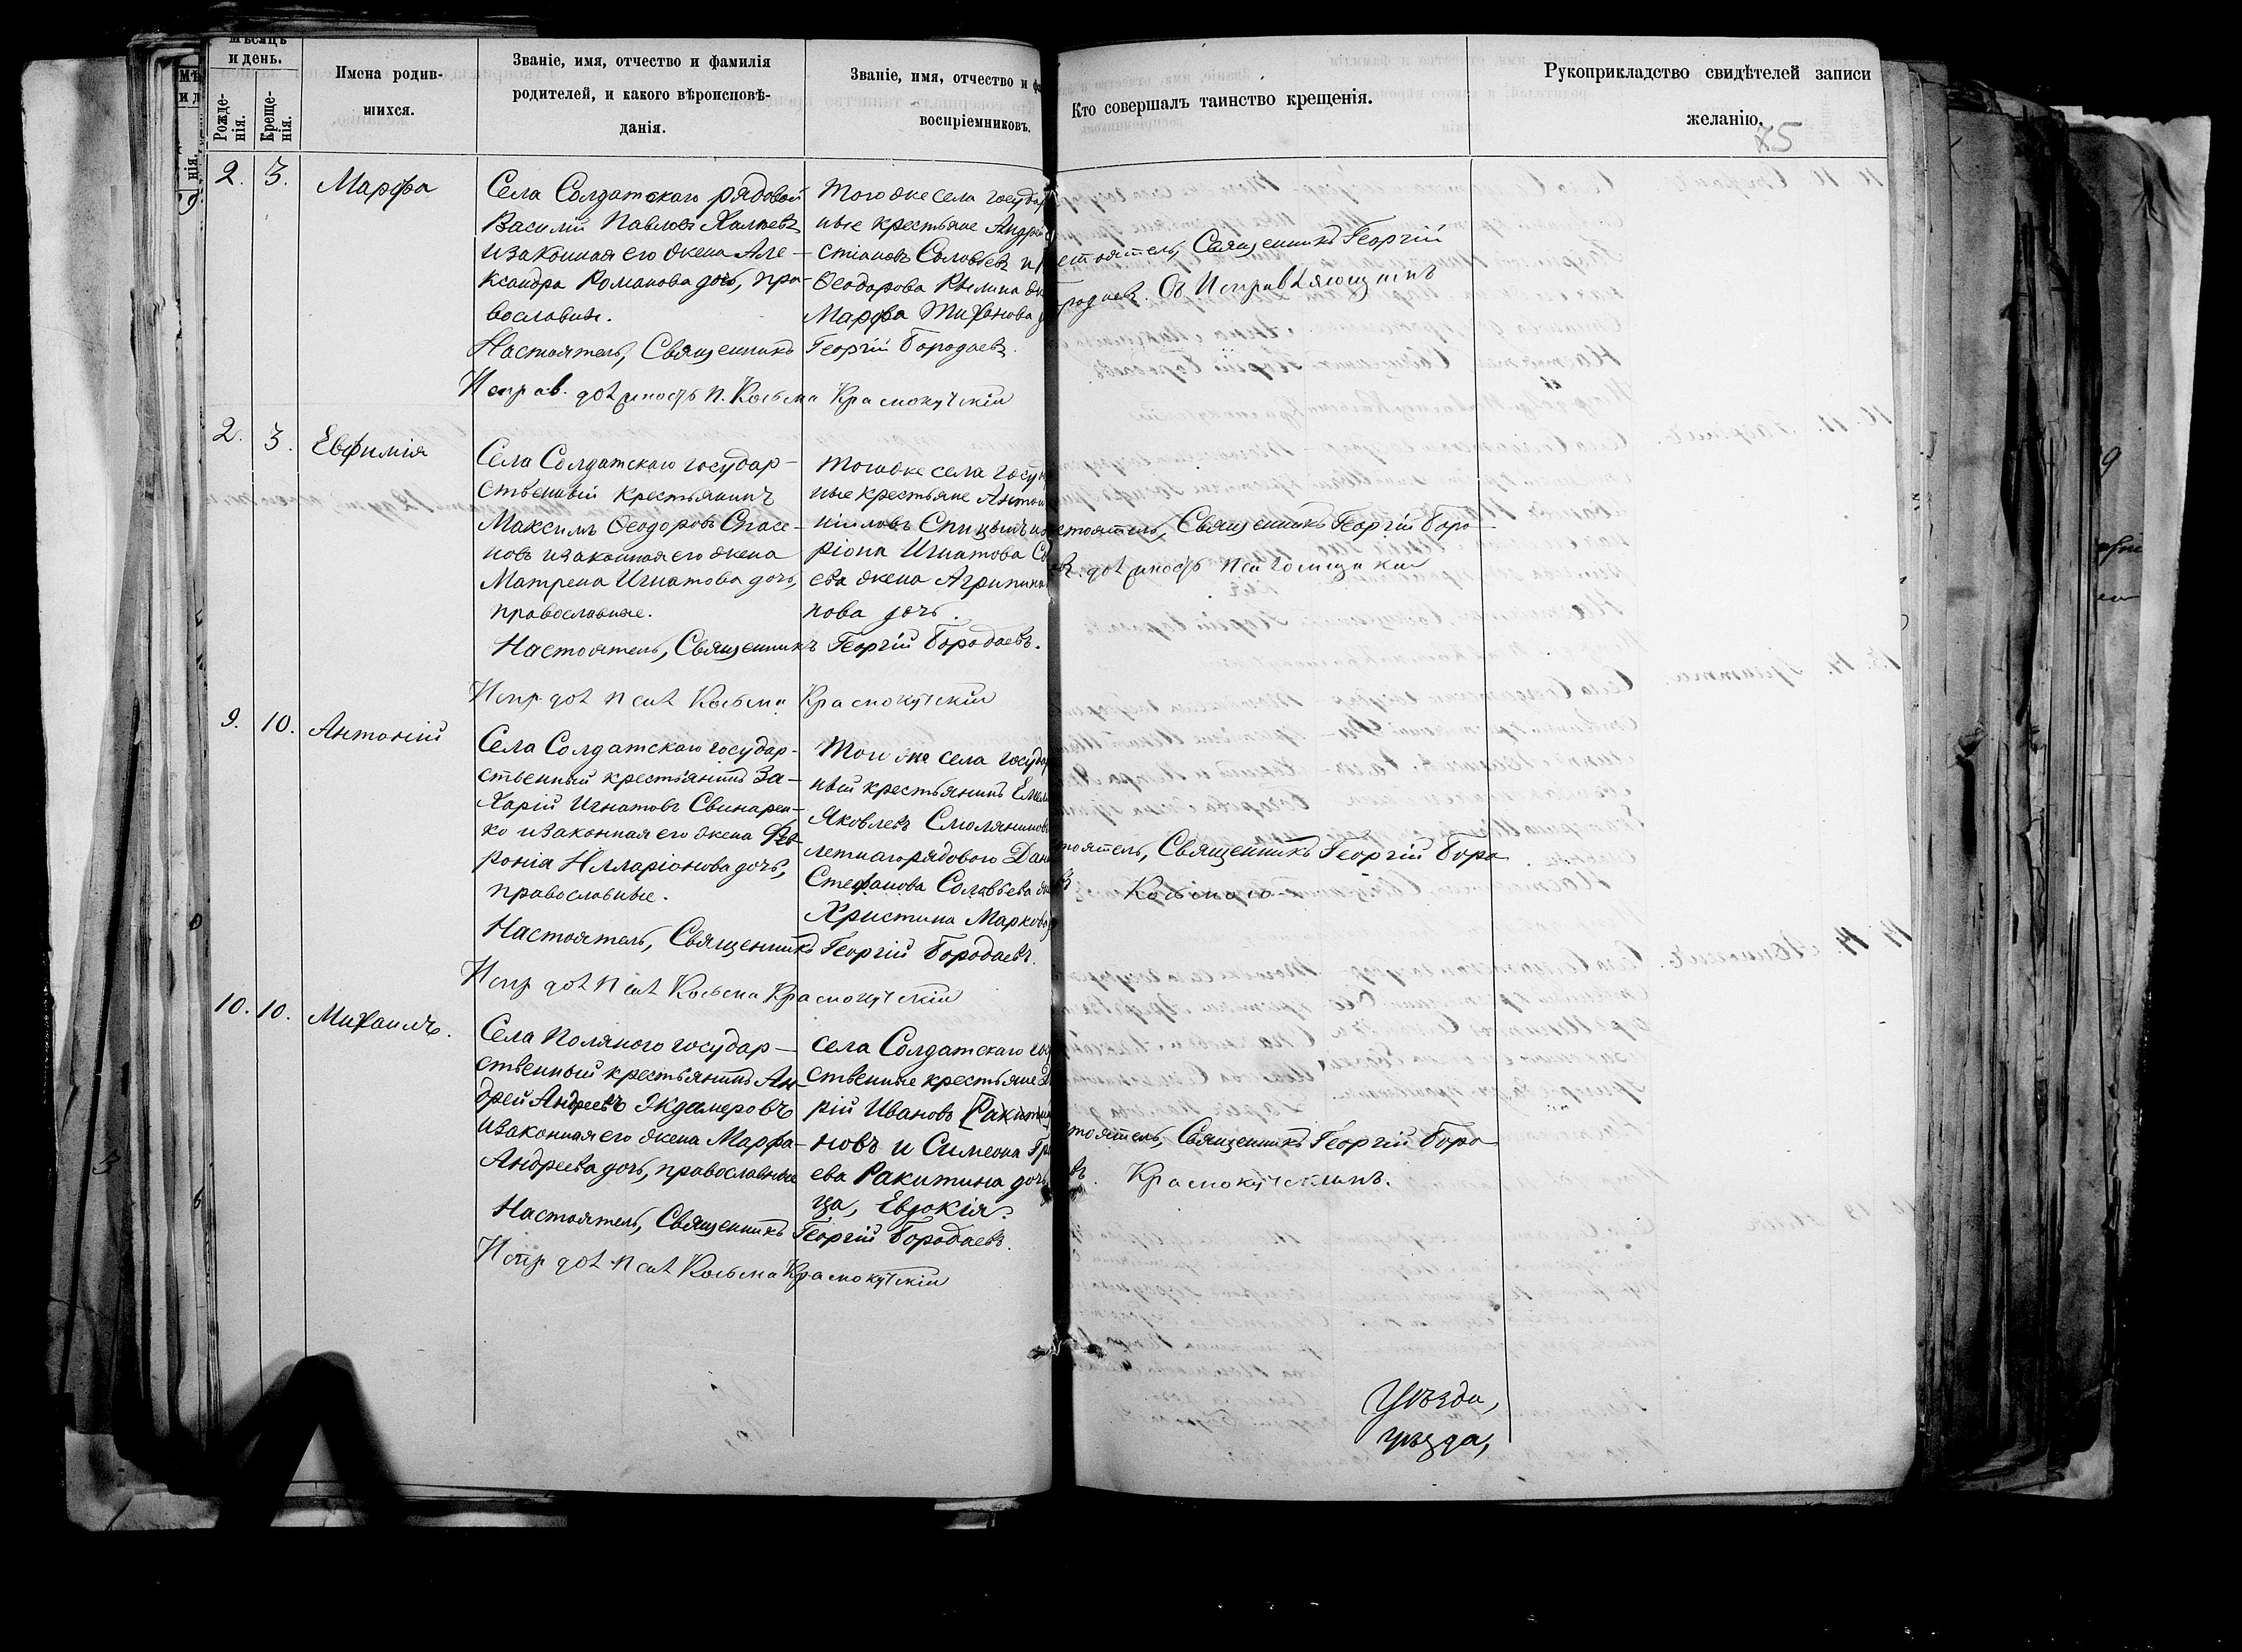 Мѣсяцъ
и день.
Рожде-
нія.
Креще-
нія.
Имена родив-
шихся.
Званіе, имя, отчество и фамилія
родителей, и какого вѣроисповѣ-
данія.
Званіе, имя, отчество и фа
воспріемниковъ.
Кто совершалъ таинство крещенія.
Рукоприкладство свидѣтелей записи
желанію.
75
2. 3. Марфа
Села Солдатскаго рядовой
Василій Павловъ
и законная его жена Але-
ксандра Романова дочь, пра-
вославные.
Того же села государ
ные крестьяне Андрей
стіановъ Соловьевъ и
Ѳеодорова Рылина же
Марфа
стоятель, Священникъ Георгій
родаевъ. Съ Исправляющимъ
Настоятель, Священникъ Георгій Бородаевъ.
Исправ. должность п. Косьма Краснокутскій
2. 3. Евфимія
Села Солдатскаго государ-
ственный крестьянинъ
Максимъ Ѳеодоровъ Спасе-
новъ и законная его жена
Матрена Игнатова дочь,
православные.
Того же села госуд
ные крестьяне Антон
иловъ Спицынъ и
ріона Игнатова Со
ева жена Агрипина
нова дочь.
стоятель, Священникъ Георгій Боро-
евъ. должность
Настоятель, Священникъ Георгій Бородаевъ.
Испр дол псал Косьма Краснокутскій
9. 10. Антоній
Села Солдатскаго государ-
ственный крестьянинъ За-
харій Игнатовъ Свинарен-
ко и законная его жена Фев
ронія Илларіонова дочь,
православные.
Того же села государ
ный крестьянинъ Емел
Яковлевъ Смоляниновъ
летнаго рядового Дани
Стефанова Соловьева же
Христина Маркова
тоятель, Священникъ Георгій Боро-
въ Косьмою
Настоятель, Священникъ Георгій Бородаевъ.
Испр дол псал Косьма Краснокутскій
10. 10. Михаилъ.
Села Поляного государ-
ственный крестьянинъ Ан-
дрей Андреевъ Экдамеровъ
и законная его жена Марфа
Андреева дочь, православные
села Солдатскаго гос
ственные крестьяне
рій Ивановъ Ракити
новъ и Симеона Гри
ева Ракитина дочь
ца, Евдокія.
тоятель, Священникъ Георгій Боро-
въ. Краснокутскимъ.
Настоятель, Священникъ Георгій Бородаевъ.
Испр дол псал Косьма Краснокутскій
Уѣзда,
уѣзда,